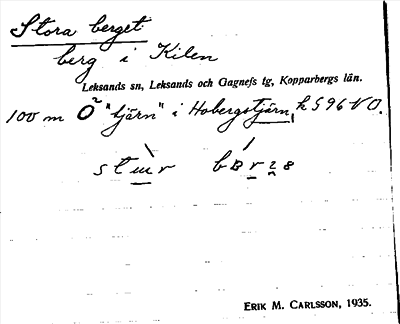 Stora berget
berg i Kilen
Leksands sn, Leksands och Gagnefs tg, Kopparbergs län.
100 m Ö "tjärn" i Hobergstjärn, k 596 NO.
ERIK M. CARLSSON, 1935.